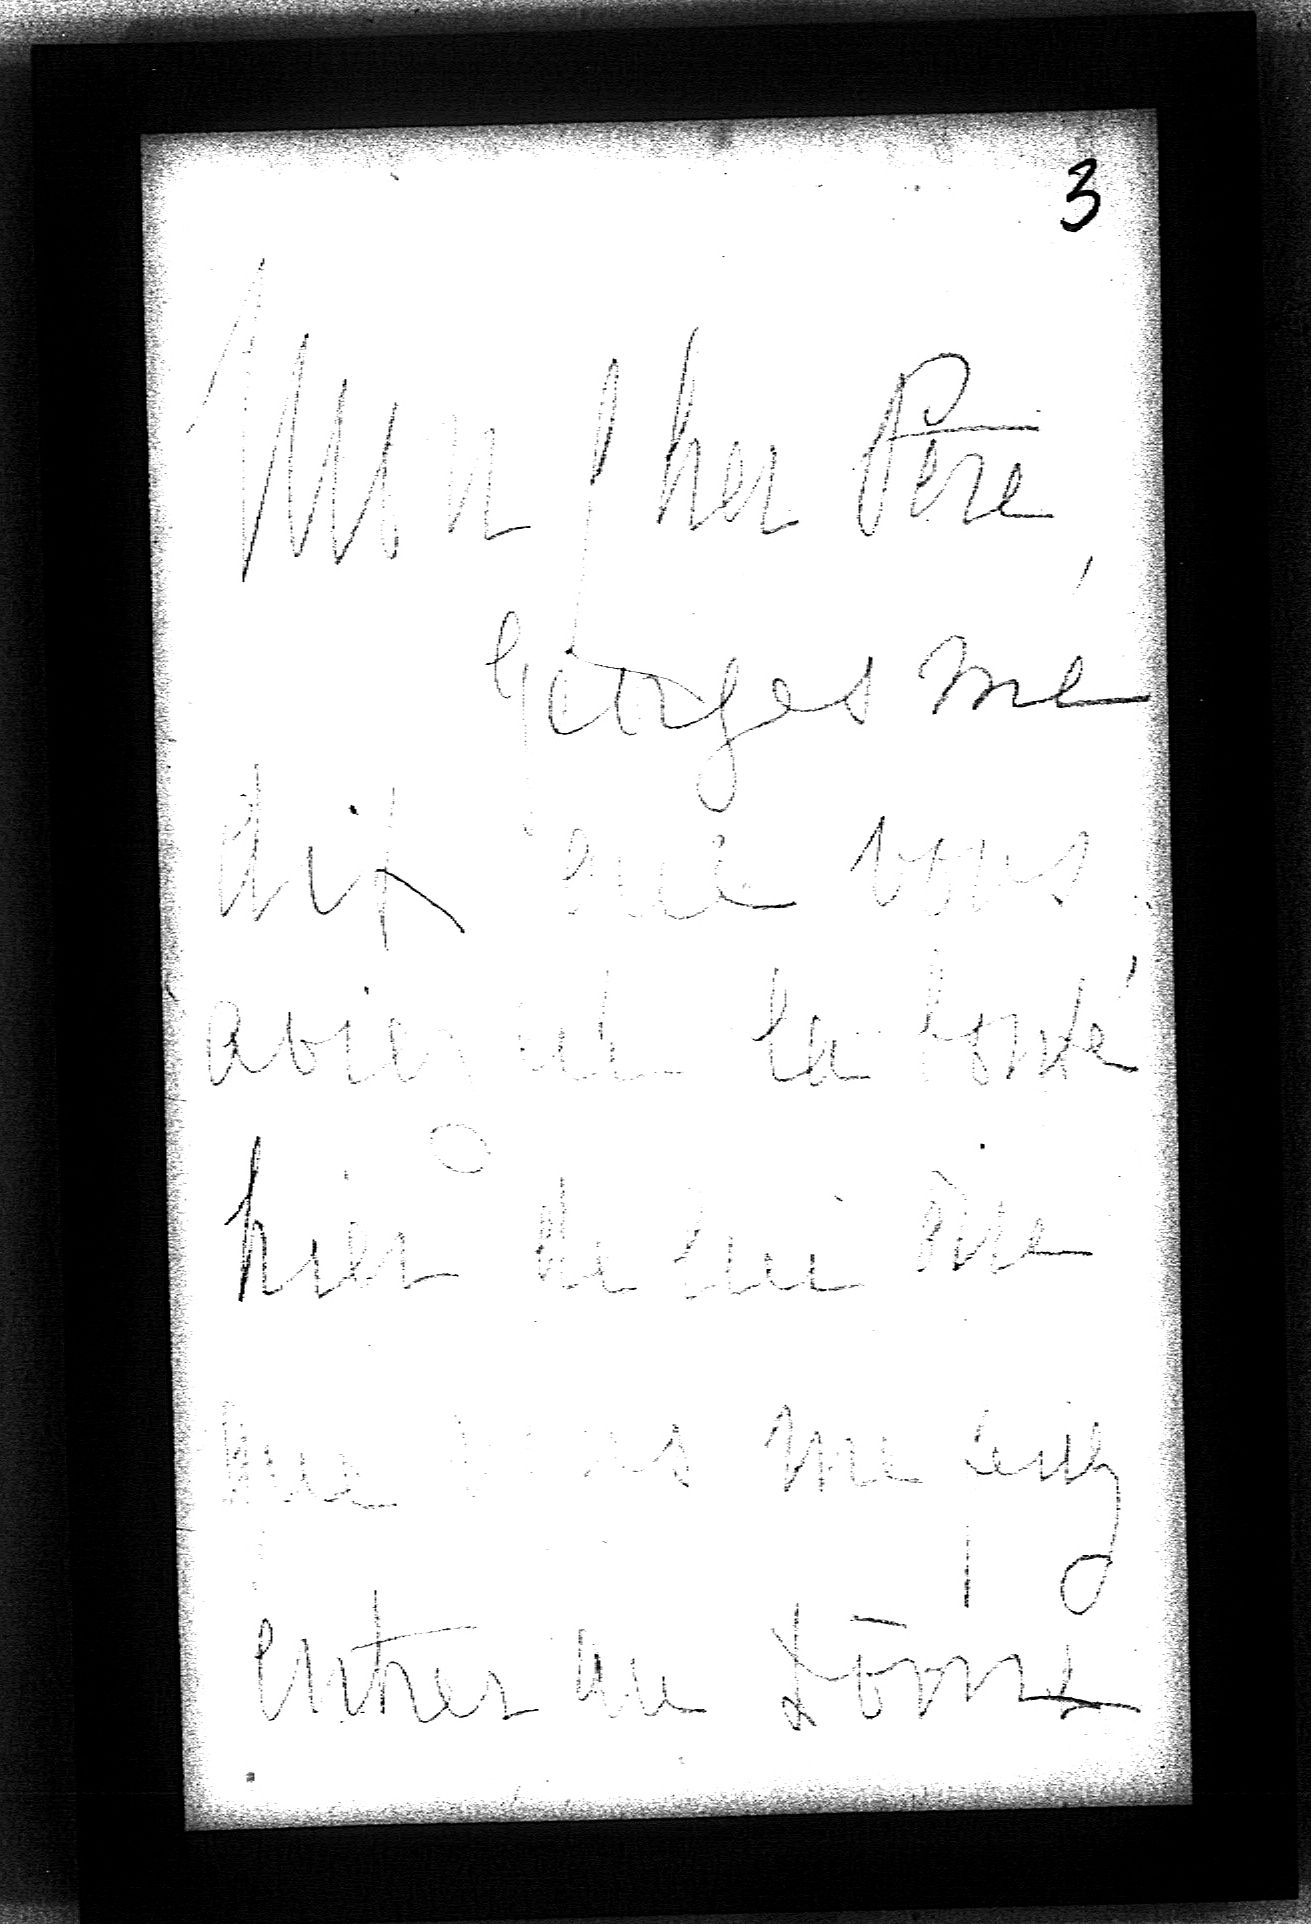 3
Mon cher Père
Georges me
dit que vous
aviez eu la bonté
hier de lui dire
que vous me
entrer au